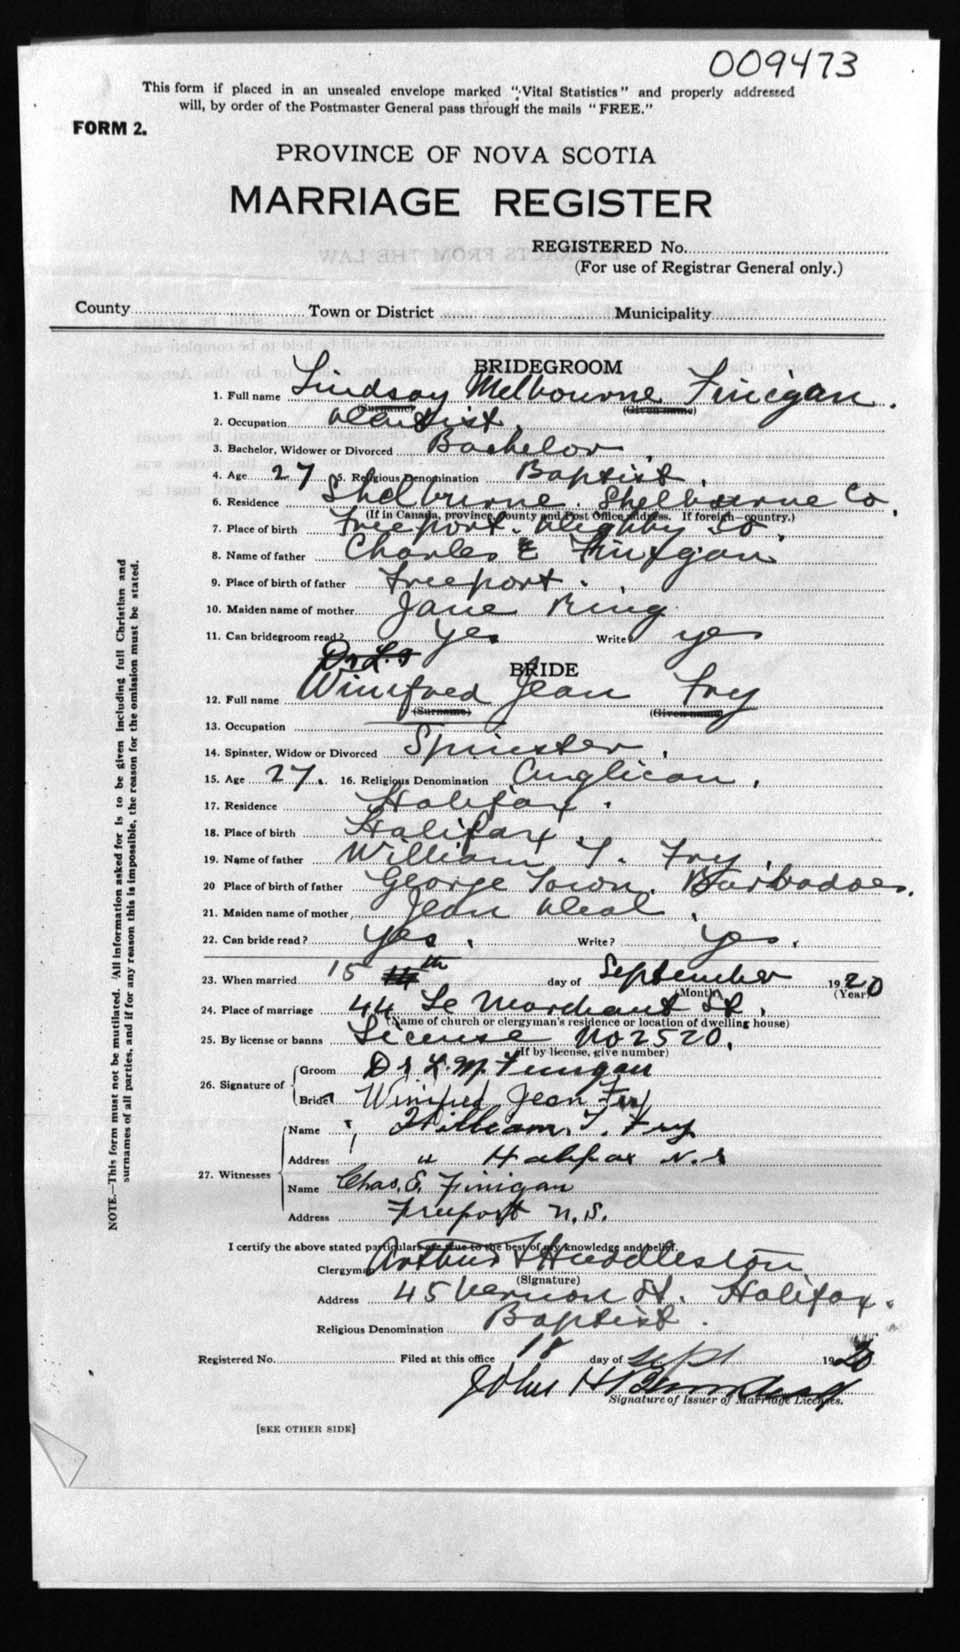 009473
This form if placed in an unsealed envelope marked "Vital Statistics" and properly addressed
will, by order of the Postmaster General pass through the mails "FREE."
FORM 2.
PROVINCE OF NOVA SCOTIA
MARRIAGE REGISTER
REGISTERED No.
(For use of Registrar General only.)
County Town or District Municipality
BRIDEGROOM
1. Full name Lindsay Melbourne Finigan.
(Surname) (Given name)
2. Occupation Dentist.
3. Bachelor, Widower or Divorced Bachelor.
4. Age 27 5. Religious Denomination Baptist.
6. Residence Shelburne Shelburne Co.
(If in Canada, province, county and Post Office address. If foreign—country.)
7. Place of birth Freeport. Digby Co.
8. Name of father Charles E Finigan
9. Place of birth of father Freeport.
10. Maiden name of mother Jane Ring
11. Can bridegroom read? Yes Write? yes
Dr L.
BRIDE
12. Full name Winifred Jean Fry
(Surname) (Given name)
13. Occupation
14. Spinster, Widow or Divorced Spinster.
15. Age 27. 16. Religious Denomination Anglican.
17. Residence Halifax.
18. Place of birth Halifax.
19. Name of father William T. Fry.
20 Place of birth of father George Town. Barbadoes.
21. Maiden name of mother, Jean Deal.
22. Can bride read? Yes. Write? Yes.
23. When married 15 14th day of September 1920
(Month) (Year)
24. Place of marriage 44 Le Marchant St.
(Name of church or clergyman's residence or location of dwelling house)
25. By license or banns License No 2520.
(If by license, give number)
26. Signature of Groom Dr L. M. Finigan
Bride Winifred Jean Fry
27. Witnesses Name William. T. Fry
Address " Halifax N.S
Name Chas. E. Finigan
Address Freeport N.S.
I certify the above stated particulars are true to the best of my knowledge and belief.
Clergyman Arthur Huddleston
(Signature)
Address 45 Vernon St. Halifax.
Religious Denomination Baptist.
Registered No. Filed at this office 18 day of Sept 1920
John H
Signature of Issuer of Marriage Licenses.
[SEE OTHER SIDE]
NOTE.—This form must not be mutilated. All information asked for is to be given including full Christian and
surnames of all parties, and if for any reason this is impossible, the reason for the omission must be stated.